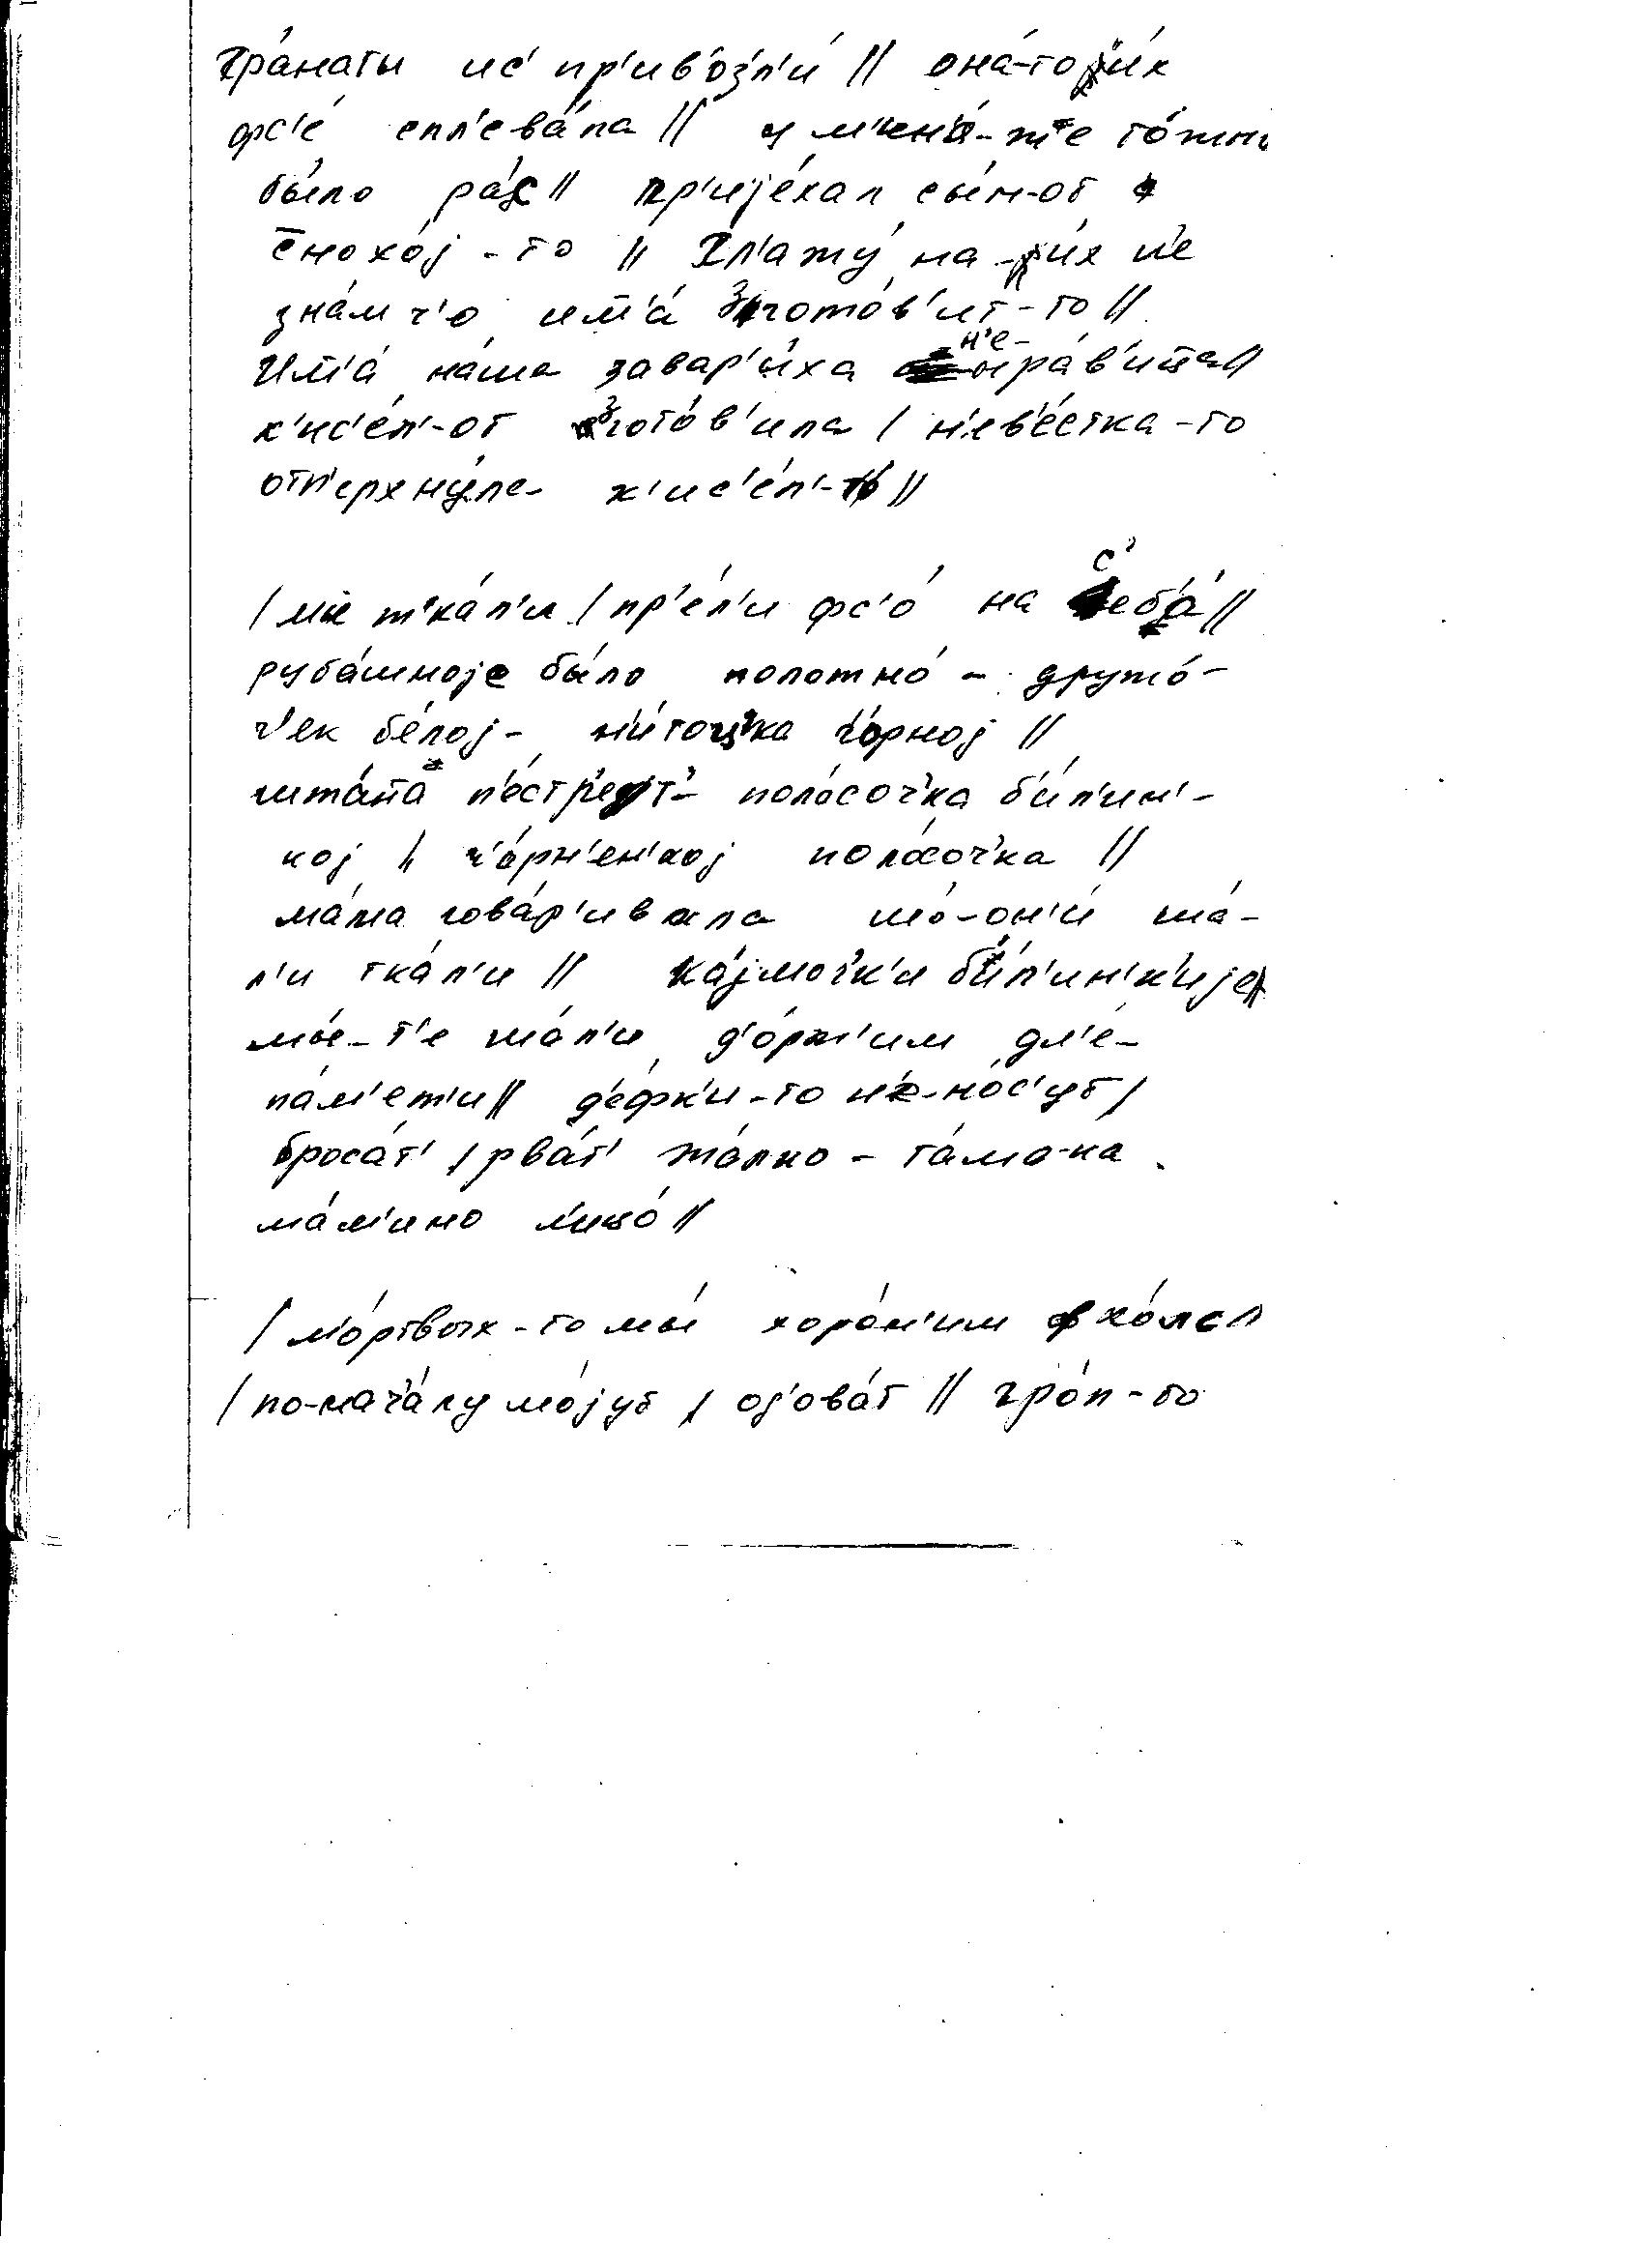 гра́наты ис' пр'ив'о́з'л'и́ // она́-то ји́х
фс'е́ спл'ева́ла // у м'ен'а́-же то́жы
бы́ло ра́з // пр'ије́хал сы́н-от с
снохо́ј-то // Гл'ажу́ на-н'и́х н'е
зна́м ч'о им'а́ згото́в'ит'-то //
Им'а́ на́ша завар'и́ха н'е-нра́в'ица //
к'ис'е́л'-от згото́в'ила / н'ев'е́стка-то
отп'ерхну́ла к'ис'е́л'-то //
/ мы тка́л'и / пр'е́л'и фс'о́ на с'еб'а́ //
руба́шноје бы́ло полотно́ - дружо́-
ч'ек б'е́лој - н'и́точ'ка ч'о́рној //
штаны́ п'естр'ет' - поло́соч'ка б'и́л'ин'-
кој / ч'о́рн'ен'кој поло́соч'ка //
ма́ма гова́р'ивала шо́-он'и́ ша́-
л'и тка́л'и // ка́јмоч'к'и б'и́л'ин'к'ије //
мы́-т'е ша́л'и д'о́рж'им дл'е-
па́м'ет'и // д'е́фк'и-то н'е-но́с'ут /
броса́т' / рва́т' жа́лко - та́мо-ка
ма́м'ино л'ицо́ //
/ м'о́ртвых-то мы́ хоро́н'им ф хо́лсл
/ по-нач'а́лу мо́јут / од'ова́т // гро́п-то